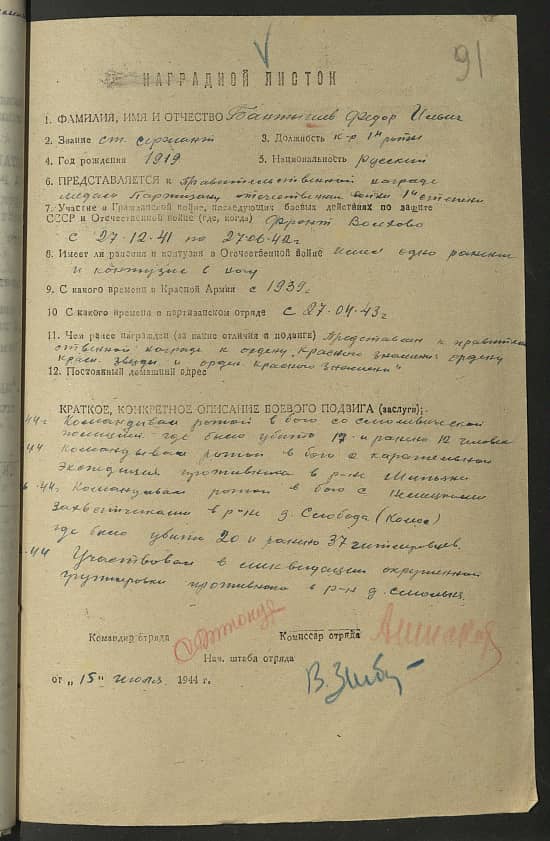 91
НАГРАДНОЙ ЛИСТОК
1. ФАМИЛИЯ, ИМЯ И ОТЧЕСТВО Федор Ильич
2. Звание ст. сержант 3. Должность к-р 1й роты
4. Год рождения 1919 5. Национальность Русский
6. ПРЕДСТАВЛЯЕТСЯ к Правительственной награде
медаль Партизану отечественной войны 1й степени
7. Участие в Гражданской войне, последующих боевых действиях по защите
СССР и Отечественной войне (где, когда) Фронт
с 27-12-41 по 27-06-42г
8. Имеет ли ранения и контузии в Отечественной войне одно ранение
и контузию в ногу
9. С какого времени в Красной Армии с 1939г
10 С какого времени в партизанском отряде с 27-04-43г
11. Чем ранее награжден (за какие отличия и подвиги) Представлен к правитель
ственной награде к ордену „Красного знамени" ордену
Красн. звезды и орден. Красного знамени"
12. Постоянный домашний адрес
КРАТКОЕ, КОНКРЕТНОЕ ОПИСАНИЕ БОЕВОГО ПОДВИГА (заслуги):
44г Командывал ротой в бою со
полицией где было убито 17 и ранено 12 человек
44 Командывал ротой в бою с карательной
Экспедиция противника в р-не
44г Командывал ротой в бою с Немецкими
Захватчиками в р-не д. Слобода
где было убито 20 и ранено 37 гитлеровцев.
44 Участвовал в ликвидации окруженной
группировки противника в р-н д.
Командир отряда Комиссар отряда
Нач. штаба отряда
от „15" июля 1944 г.